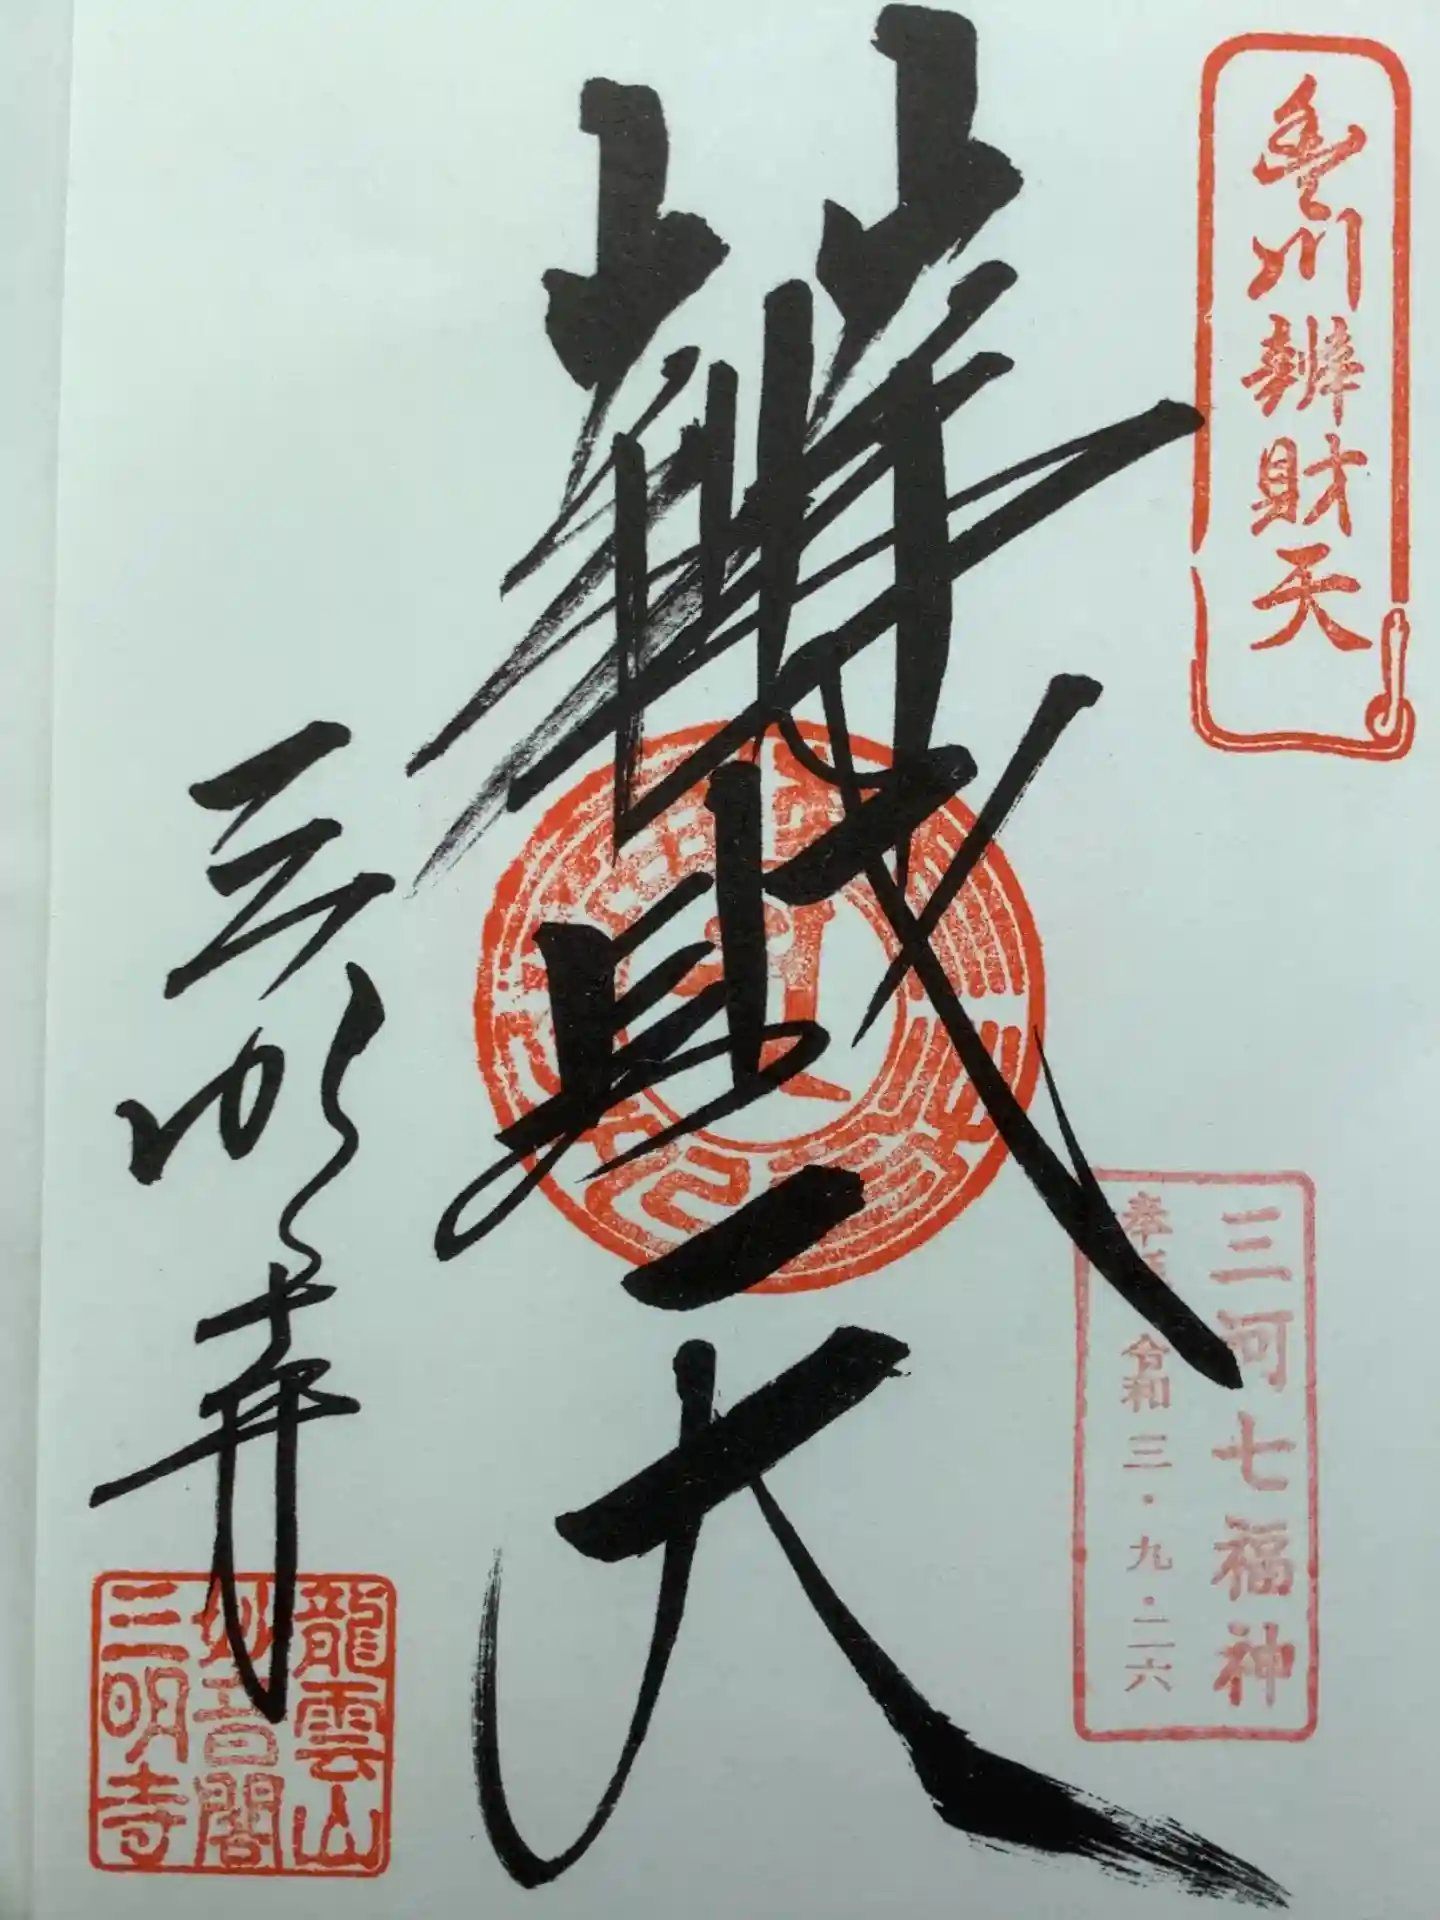 豊川辨財天
三河七福神
令和三・九・二六
辨財天
三明寺
龍雲山
妙音閣
三明寺